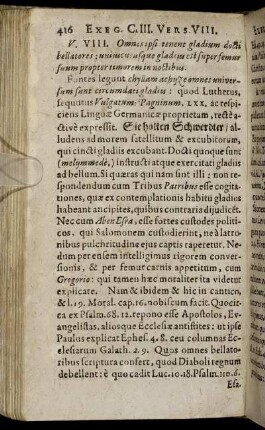 416 EXEG. C. III. VERS. VIII.
V. VIII. Omnes ipsi tenent gladium docti
bellatores: uniuscujusque gladius est super femur
suum propter timorem in noctibus.
Fontes legunt omnes univer-
sum sunt circumdati gladiis: quod Lutherus,
sequutus Vulgatum Pagninum. LXX. ac respi-
ciens Linguæ Germanicæ proprietatem, rectè
activè expressit. Sie halten Schwerdter / al-
ludens ad morem satellitum & excubitorum,
qui cincti gladiis excubant. Docti quoque sunt
instructi atque exercitati gladiis
ad bellum. Si quæras qui nam sint illi? non re-
spondendum cum Tribus Patribus esse cogita-
tiones, quæ ex contemplationis habitu gladios
habeant ancipites, quibus contraria dijudicēt.
Nec cum Aben Esra, esse fortes custodes politi-
cos, qui Salomonem custodierint, ne à latro-
nibus pulchritudine ejus captis rapetetur. Ne-
dum per ensem intelligimus rigorem conver-
sionis, & per femur carnis appetitum, cum
Gregorio: qui tamen hæc moraliter ita videtur
explicare. Nam & ibidem & hic in cantico,
& l. 19. Moral. cap. 16. nobiscum facit. Quocir-
ca ex Psalm. 68. 12. repono esse Apostolos, Ev-
angelistas, aliosque Ecclesiæ antistites: ut ipse
Paulus explicat Ephes. 4. 8. ceu columnas Ec-
clesiarum Galath. 2. 9. Quos omnes bellato-
ribus scriptura confert, quod Diaboli regnum
debellent: è quo cadit Luc. 10. 18. Psalm. 110. 6.
Esa.